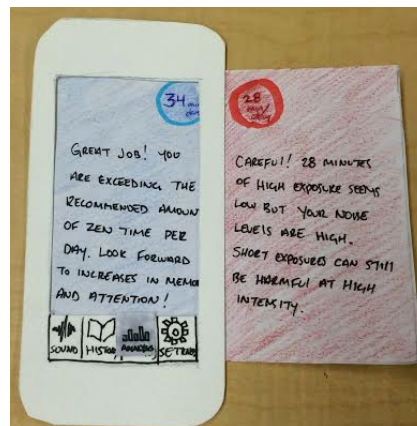 34 min
day
GREAT JOB! YOU
ARE EXCEEDING THE
RECOMMENDED AMOUN
OF ZEN TIME PER
DAY. LOOK FORWARD
TO INCREASES IN MEMO
AND ATTENTION!
SOUND HISTORY ANALYSIS SETTINGS
28
min/
day
CAREFUL! 28 MINUTES
OF HIGH EXPOSURE SEEMS
LOW BUT YOUR NOISE
LEVELS ARE HIGH.
SHORT EXPOSURES CAN STILL
BE HARMFUL AT HIGH
INTENSITY.